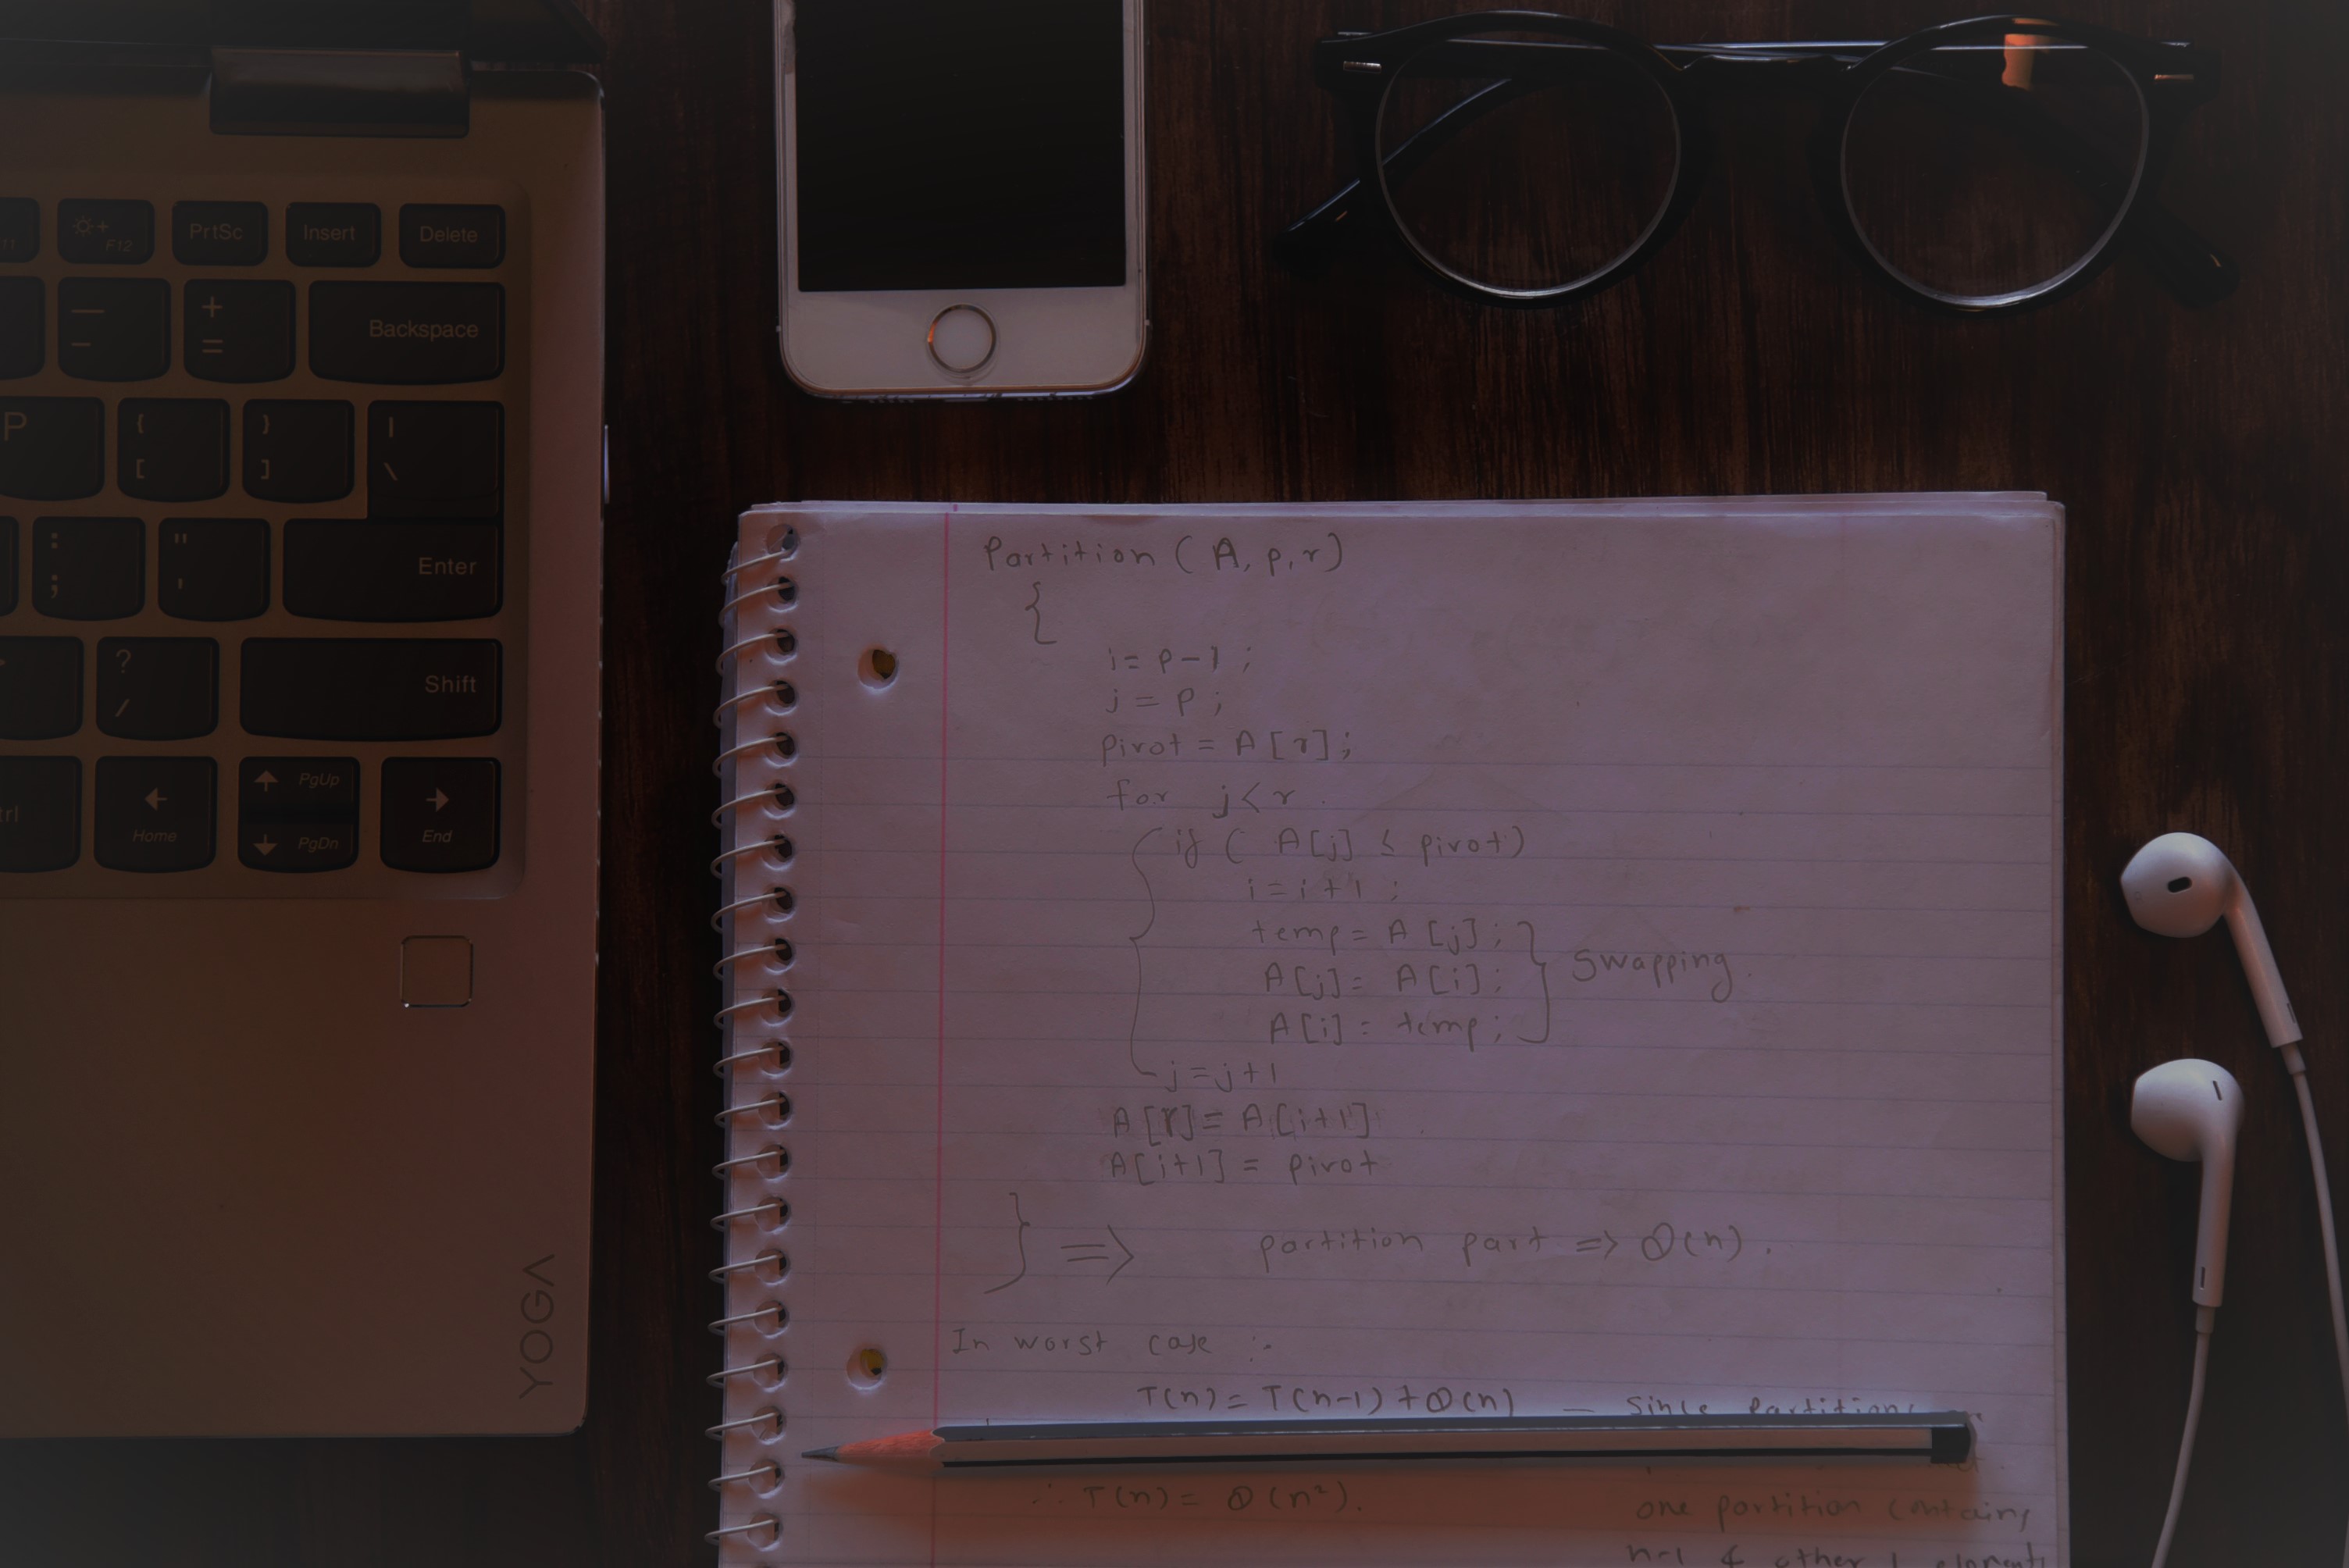 F12 PrtSc Insert Delete
— - + = Backspace
P { [ } ] | \
: ; " ' Enter
? / Shift
PgUp
Home PgDn End
YOGA
Partition (A, p, r)
{
i = p-1 ;
j = p ;
pivot = A[r];
for j < r
if ( A[j] ≤ pivot)
i = i + 1 ;
temp = A[j];
A[j] = A[i];
A[i] = temp;
} Swapping
j = j+1
A[r] = A[i+1]
A[i+1] = pivot
} => partition part => Θ(n).
In worst case :-
T(n) = T(n-1) + Θ(n) — Since Partitions
∴ T(n) = Θ(n²).
one partition containing
n-1 & other 1 element